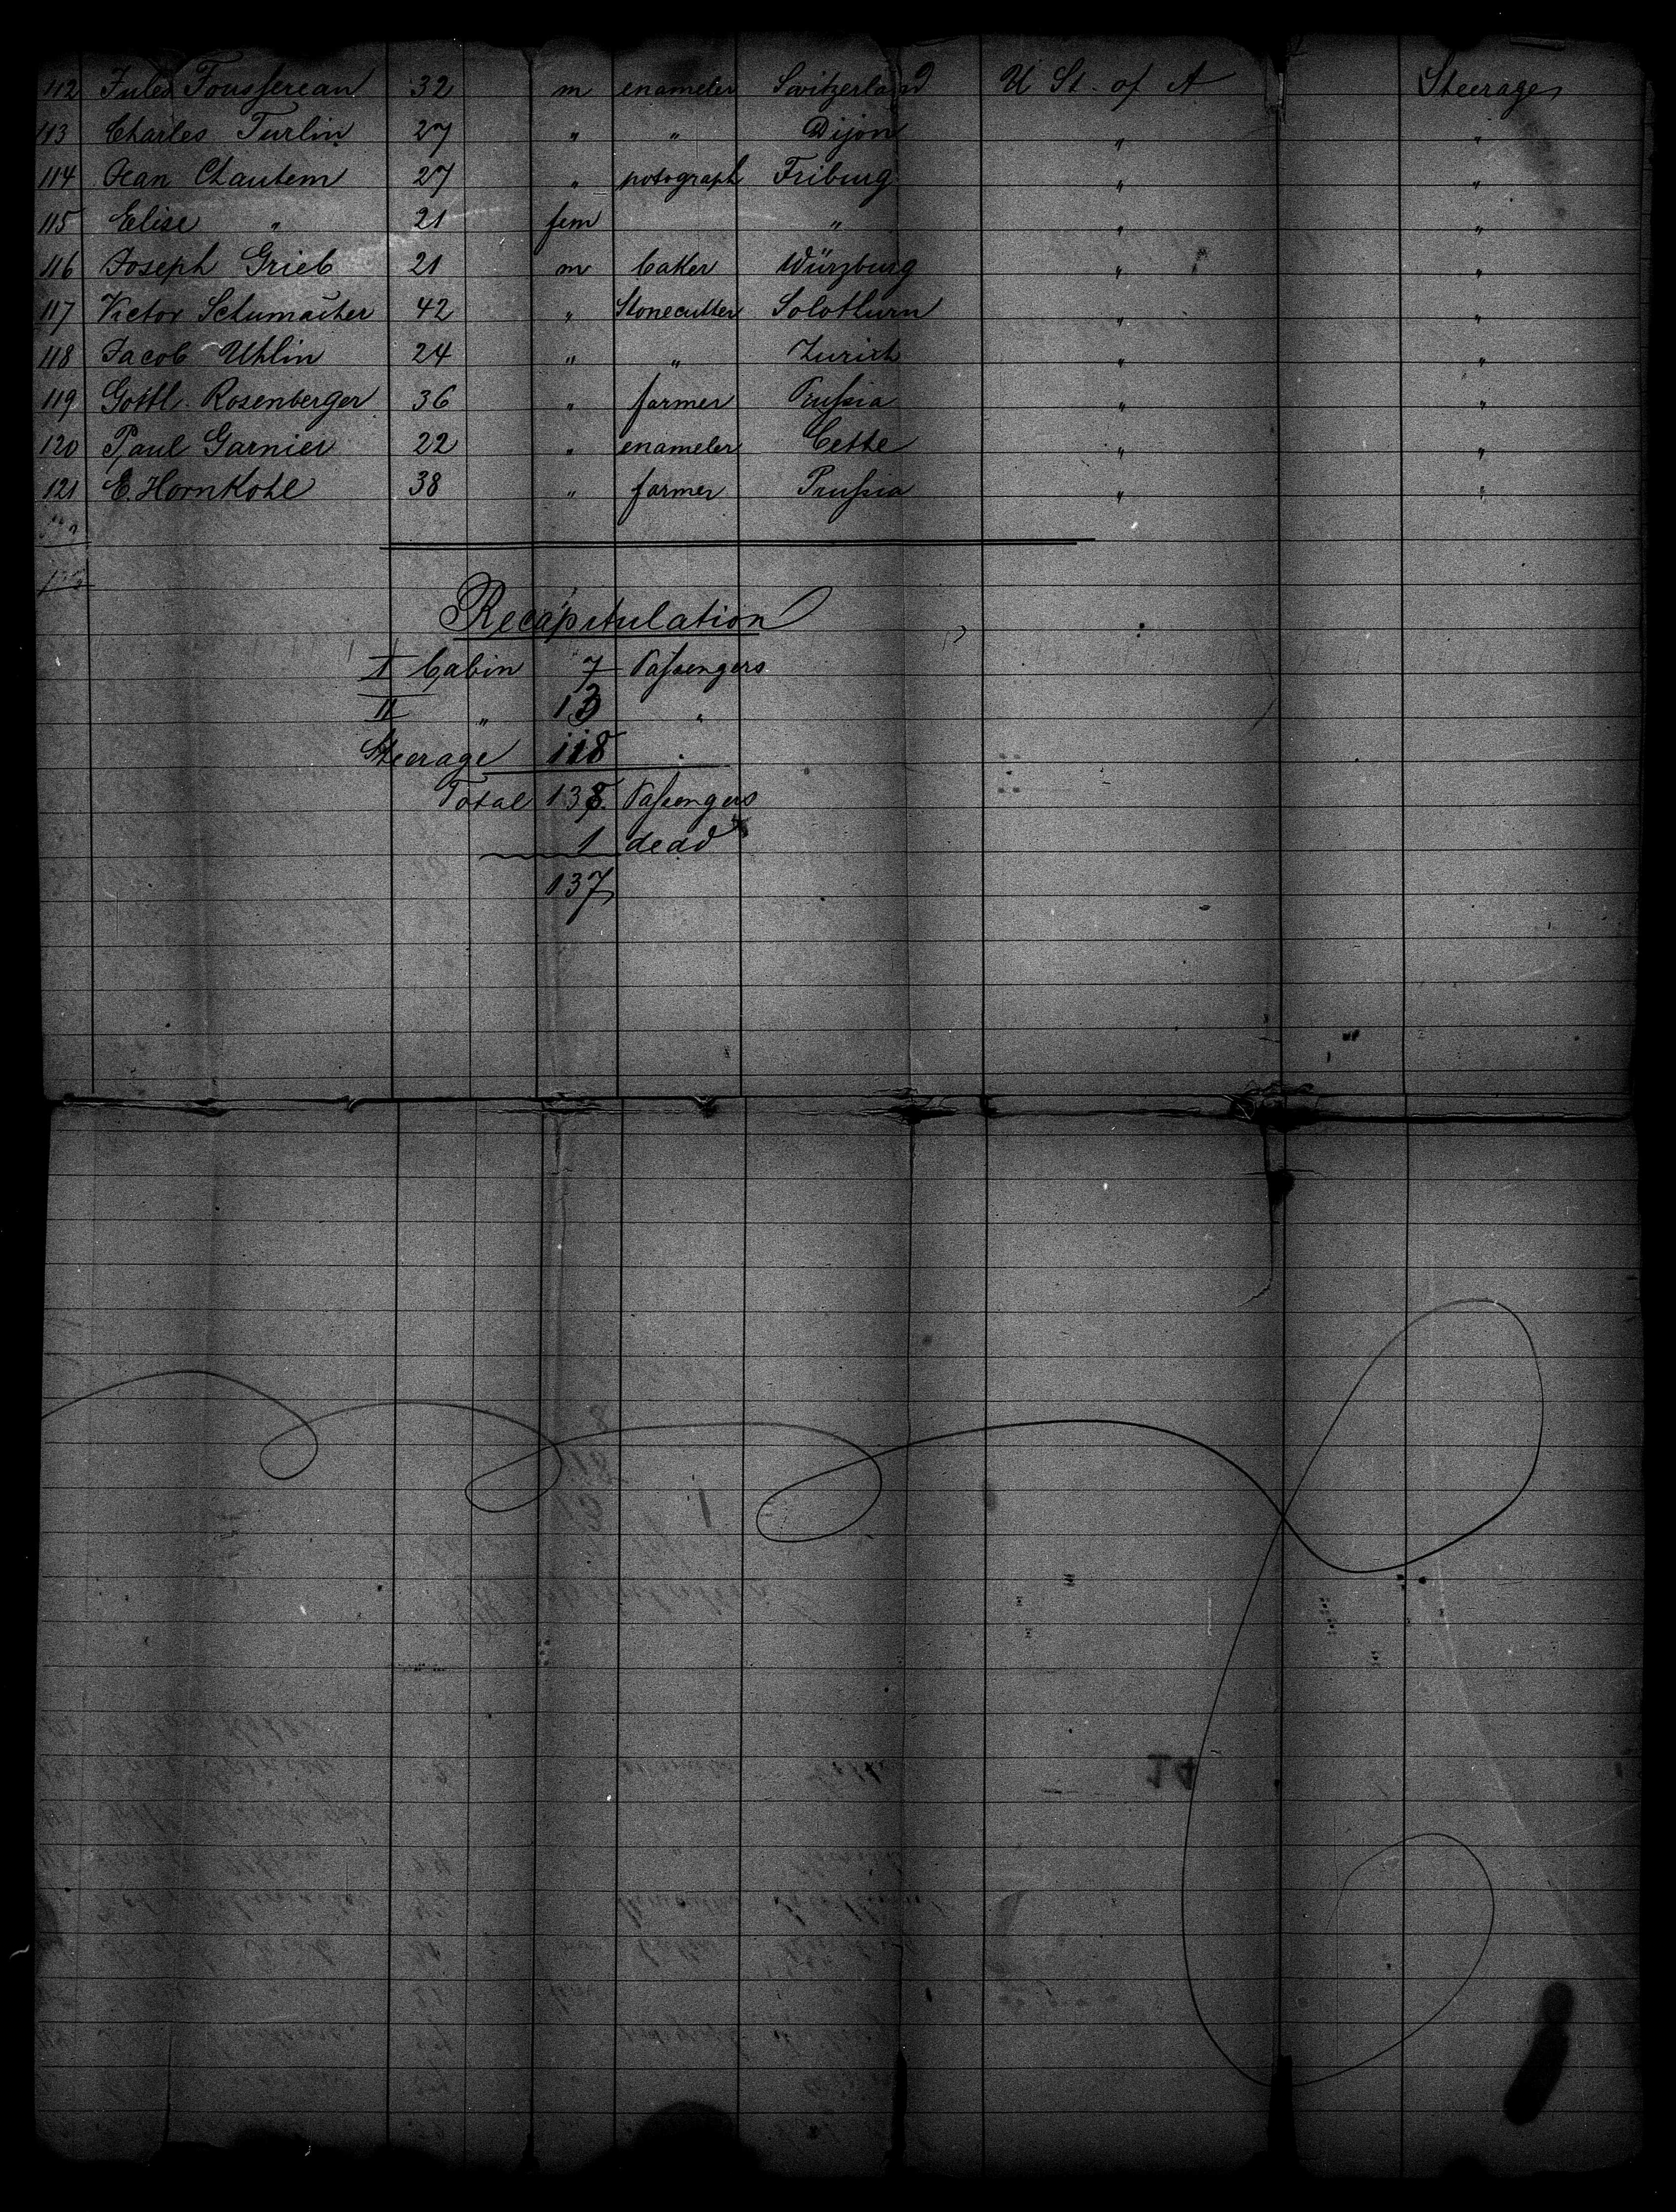 112 Jules Toussereau 32 m enameler Switzerland U St. of A Steerage
113 Charles Turlin 27 " " Dijon " "
114 Jean Chautem 27 " potograph Friburg " "
115 Elise " 21 fem " " "
116 Joseph Grieb 21 m baker Würzburg " "
117 Victor Schumacher 42 " Stonecutter Solothurn " "
118 Jacob Uhlin 24 " " Zurich " "
119 Gottl. Rosenberger 36 " farmer Prussia " "
120 Paul Garnier 22 " enameler Cette " "
121 E. Hornkohl 38 " farmer Prussia " "
Recapitulation
I Cabin 7 Passengers
II " 13 "
Steerage 118 "
Total 138 Passengers
1 dead
137
14